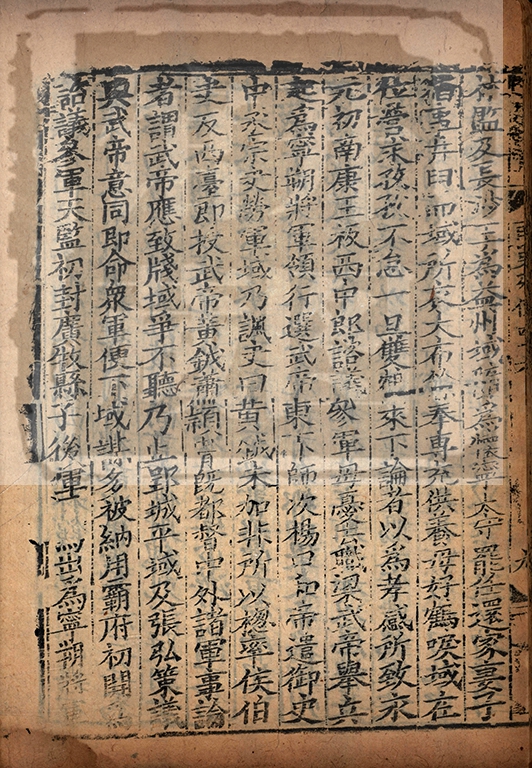 佐監及長沙王為益州域為懷寧太守罷任還家妻子
猶事井臼而域所衣大布餘奉專充供養母好鶴唳域在
位營求孜孜不怠一旦雙鶴來下論者以為孝感所致永
元初南康王板西中郎諮議參軍母憂去職梁武帝舉兵
起為寧朔將軍領行選武帝東下師次楊口和帝遣御史
中丞宗夬勞軍域乃諷夬曰黃鉞未加非所以緫率侯伯
夬反西臺即授武帝黃鉞蕭穎胄既都督中外諸軍事論
者謂武帝應致牋域爭不聽乃止郢城平域及張弘策議
與武帝意同即命衆軍便下域謀多被納用霸府初開為
諮議參軍天監初封廣牧縣子後軍 出為寧朔將軍